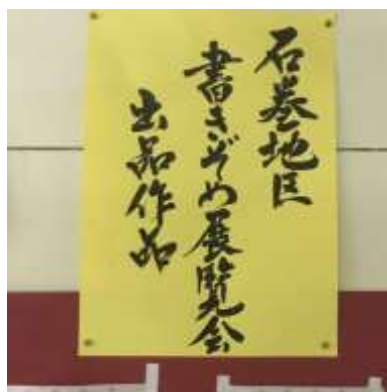 石巻地区
書きぞめ展覧会
出品作品